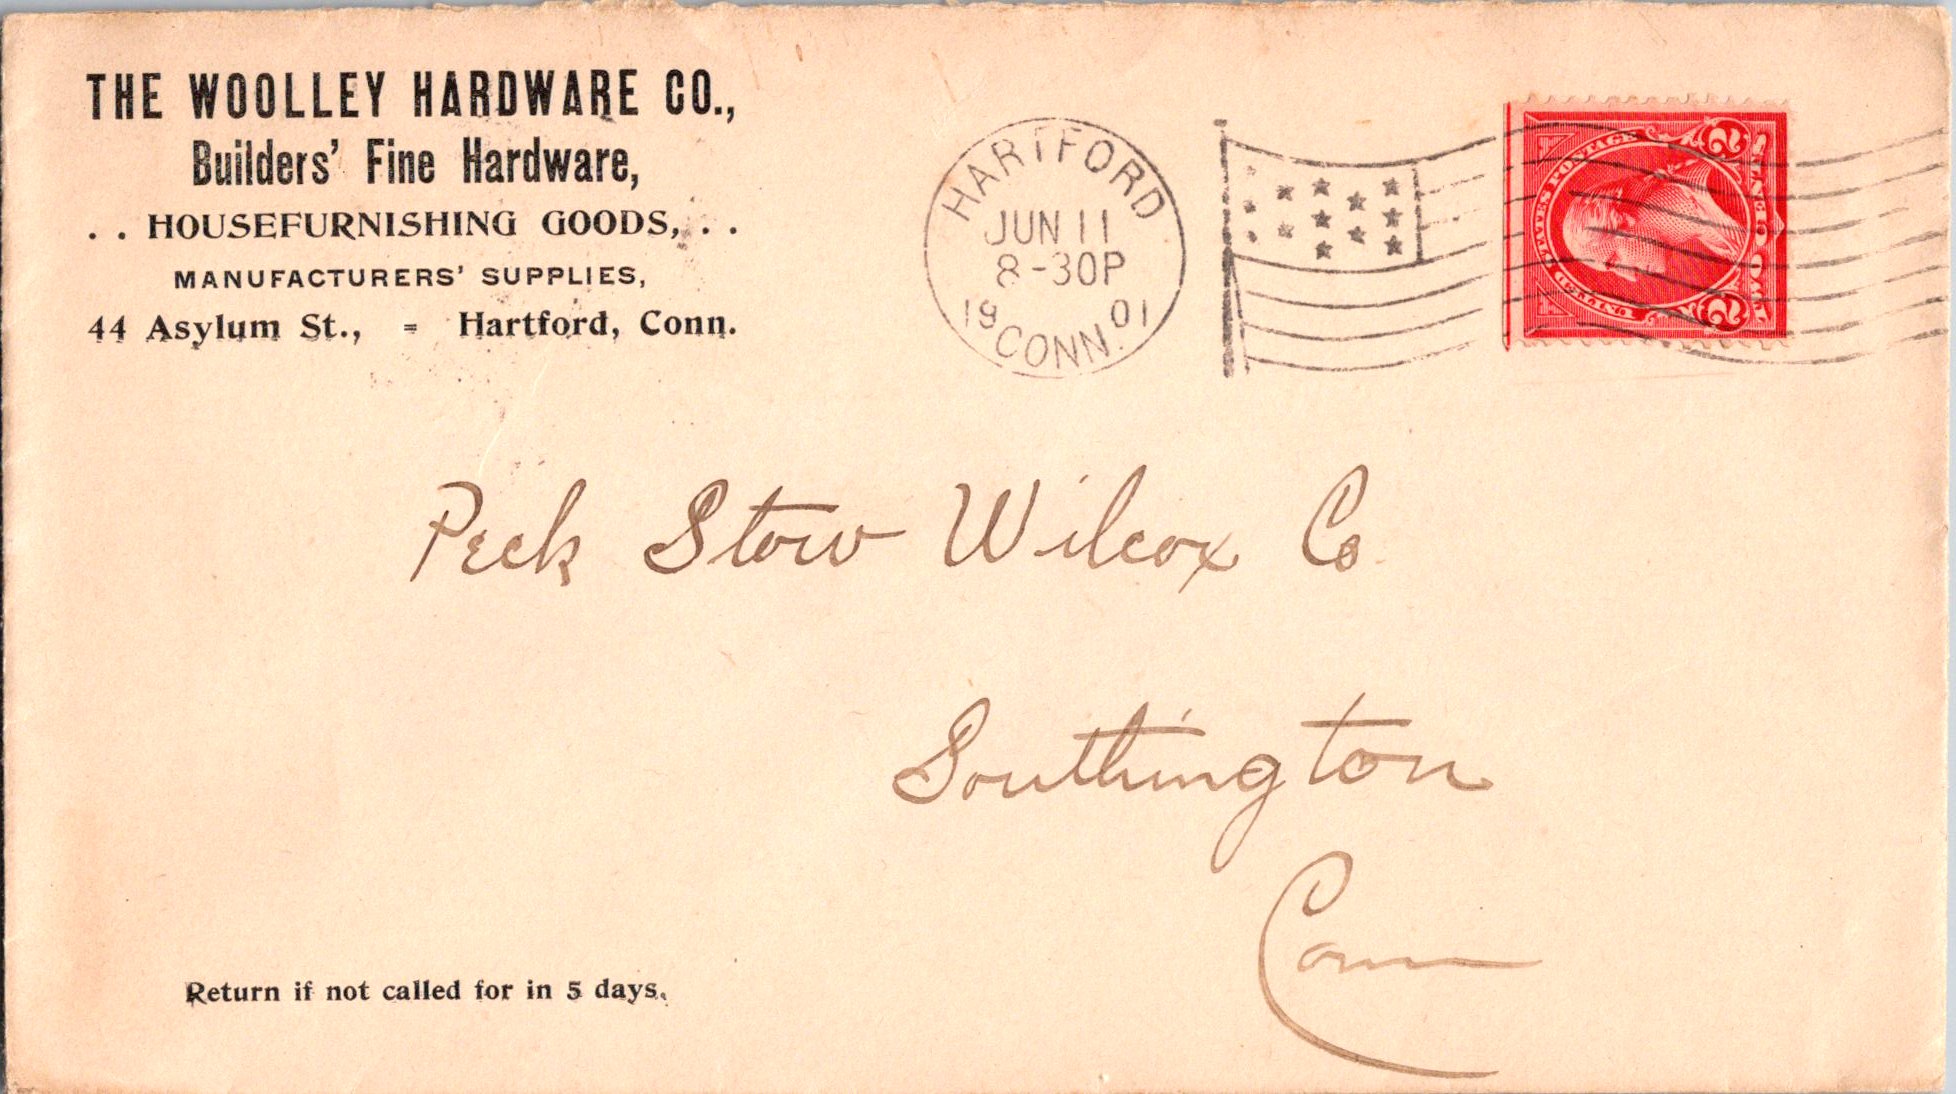 THE WOOLLEY HARDWARE CO.,
Builders' Fine Hardware,
. . HOUSEFURNISHING GOODS, . .
MANUFACTURERS' SUPPLIES,
44 Asylum St., = Hartford, Conn.
HARTFORD
JUN 11
8-30P
19 01
CONN.
UNITED STATES POSTAGE
2 TWO CENTS 2
Peck Stow Wilcox Co
Southington
Conn
Return if not called for in 5 days.